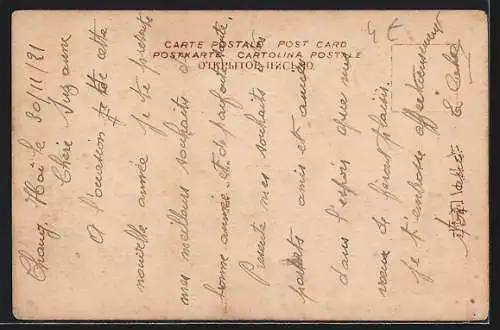 CARTE POSTALE POST CARD
POSTKARTE CARTOLINA POSTALE
ОТКРЫТОЕ ПИСЬМО
Chang Haï le 30/11/21
Chère Suzanne
A l'occasion de cette
nouvelle année je te présente
mes meilleurs souhaits de
bonne année et de parfaite santé
Présente mes souhaits à tes
parents amis et amies
dans l'espoir que mes
vœux te feront plaisir
je t'embrasse affectueusement